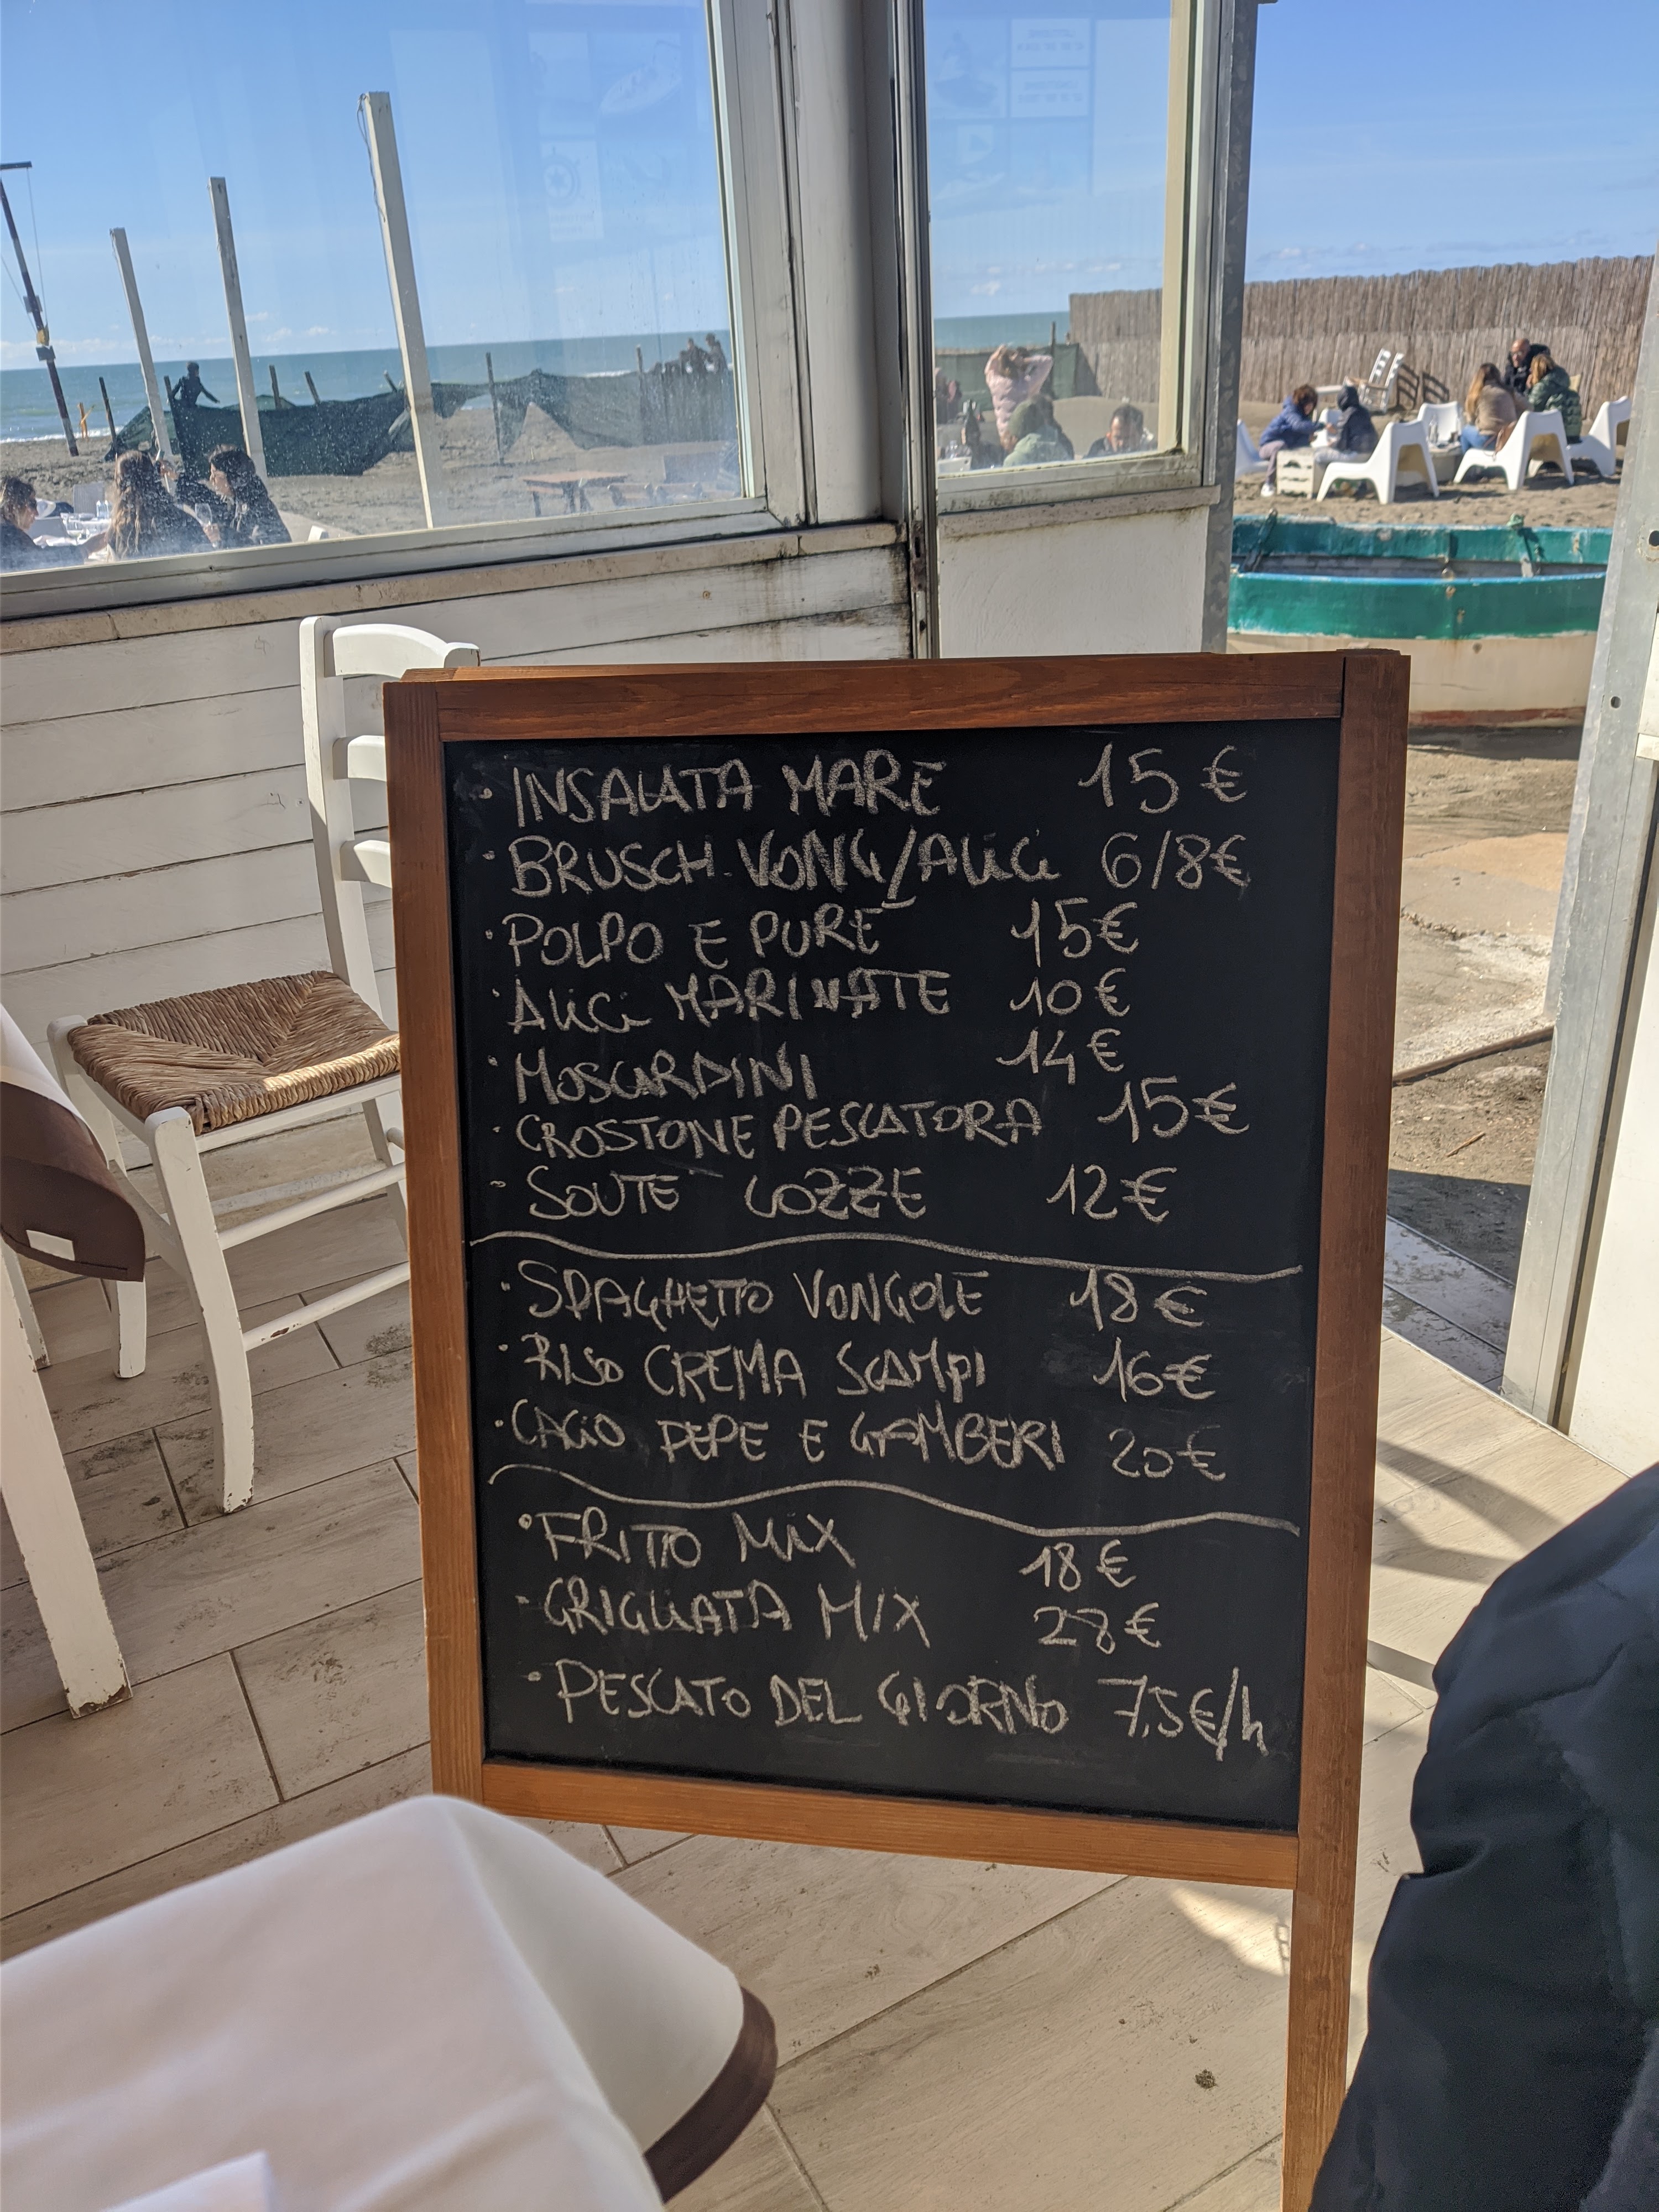 · INSALATA MARE 15 €
· BRUSCH. VONG/ALICI 6/8€
· POLPO E PURE 15€
· ALICI MARINATE 10€
· MOSCARDINI 14€
· CROSTONE PESCATORA 15€
- SOUTE COZZE 12€
· SPAGHETTO VONGOLE 18€
· RISO CREMA SCAMPI 16€
· CACIO PEPE E GAMBERI 20€
· FRITTO MIX 18€
- GRIGLIATA MIX 28€
· PESCATO DEL GIORNO 7,5€/h